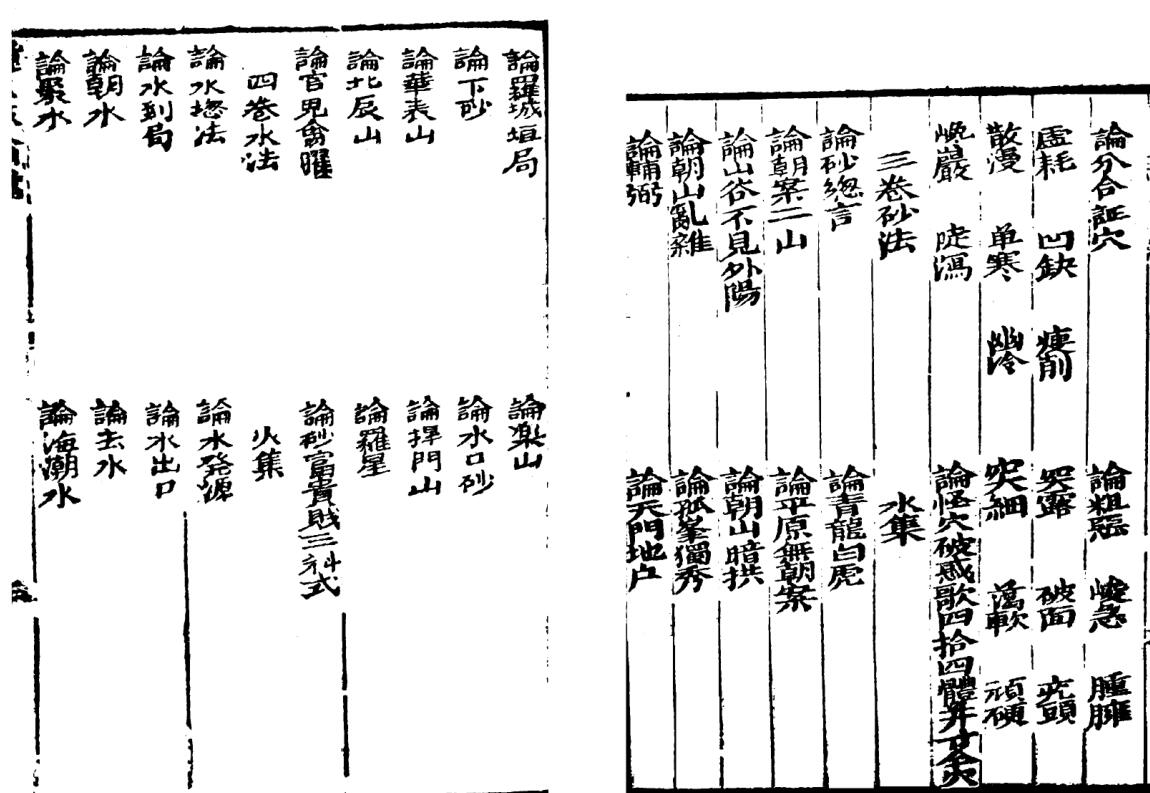 論分合証穴　論粗惡　峻急　臃腫
虛耗　凹缺　瘦削　突露　破面　疙頭
散漫　单寒　幽冷　尖細　蕩軟　頑硬
巉巖　陡瀉　論怪穴破惑歌四拾四體并
三卷砂法　水集
論砂總言　論青龍白虎
論朝案二山　論平原無朝案
論山谷不見外陽　論朝山暗拱
論朝山亂雜　論孤峯獨秀
論輔弼　論天門地户
論羅城垣局　論樂山
論下砂　論水口砂
論華表山　論捍門山
論北辰山　論羅星
論官鬼禽曜　論砂富貴賤三科式
四卷水法　火集
論水揔法　論水發源
論水到局　論水出口
論朝水　論去水
論聚水　論海潮水